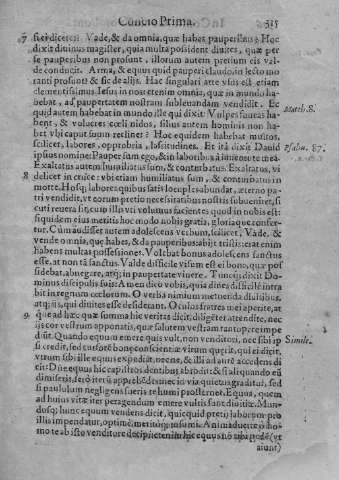 Concio Prima. 315
7 sicei diceret. Vade, & da omnia, quæ habes pauperibus? Hoc
dixit diuinus magister, quia multa possident diuites, quæ per
se pauperibus non prosunt, illorum autem pretium eis val-
de conducit. Arma, & equus quid pauperi claudo, in lecto
tranti prosunt? & sic de alijs. Hac singulari arte vsus est etiam
clementissimus Iesus in nos: etenim omnia, quæ in mundo ha-
bebat, ad paupertatem nostram subleuandam vendidit. Ec
quid autem habebat in mundo ille qui dixit: Vulpes foueas ha- Matth. 8.
bent, & volucres cœli nidos, filius autem hominis non ha-
bet vbi caput suum reclinet? Hoc equidem habebat multos,
scilicet, labores, opprobria, lassitudines. Et ità dixit Dauid Psalm. 87.
ipsus nomine: Pauper sum ego, & in laboribus à iuuentute mea.
Exaltatus autem humiliatus sum, & conturbatus. Exaltatus, vi
8 delicet in cruce: vbi etiam humiliatus sum, & conturbatus in
morte. Hosque labores quibus satis locuples abundat, æterno pa-
tri vendidit, vt eorum pretio necessitatibus nostris subueniret, si
cuti reuera sit, cum illis vti volumus facientes quod in nobis est:
siquidem eius meritis hoc modo nobis gratia, gloriaque confer-
tur. Cùm audisset autem adolescens verbum, scilicet, Vade, &
vende omnia, quæ habes, & da pauperibus: abijt tristis: erat enim
habens multas possessiones. Volebat bonus adolescens sanctus
esse, at non tà sanctus. Valde difficile visum est ei bona, quæ pos
sidebat, abnegare, atque in paupertate viuere. Tunc dixit Do-
minus discipulis suis: Amen dico vobis, quia diues difficile intra
bit in regnum cœlorum. O verba nimium metuenda diuitibus,
atque ijs, qui diuites esse desiderant. Oculos fratres mei aperite, at
9. que ad hæc quæ summa hic veritas dicit, diligenter attendite, nec
cor vestrum apponatis, quæ salutem vestram impe
diūt. Quando equum emere quis vult, non venditori, nec sibi ip Simile.
si credit, sed cursorē bonę conscientiæ virum quærit, qui ei dicat,
vtrum sibi ille equus expediat, necne, & illi ad aurē accedens di
cit: Dñe equus hic capistros dentibus abrodit: & si aliquando eū
dimiseris,
si paululum negligens fueris te humi prosternet. Equus, quem
ad huius vitæ iter peragendum emere vultis sunt diuitiæ. Mun-
dusque hunc equum vendens dicit, quicquid pretij
illis impendatur, optimè
mo te ab isto venditore decipi: etenim hic equus
aiunt)